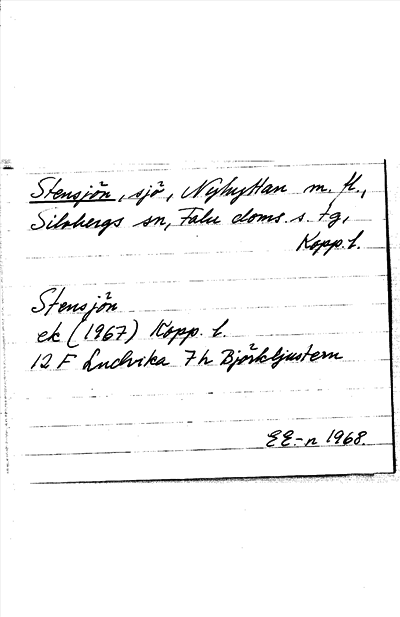 Stensjön, sjö, Nyhyttan m. fl.,
Silvbergs sn, Falu doms. s. tg,
Kopp. l.
Stensjön
ek (1967) Kopp. l.
12 F Ludvika 7h Björkljustern
EE-n 1968.